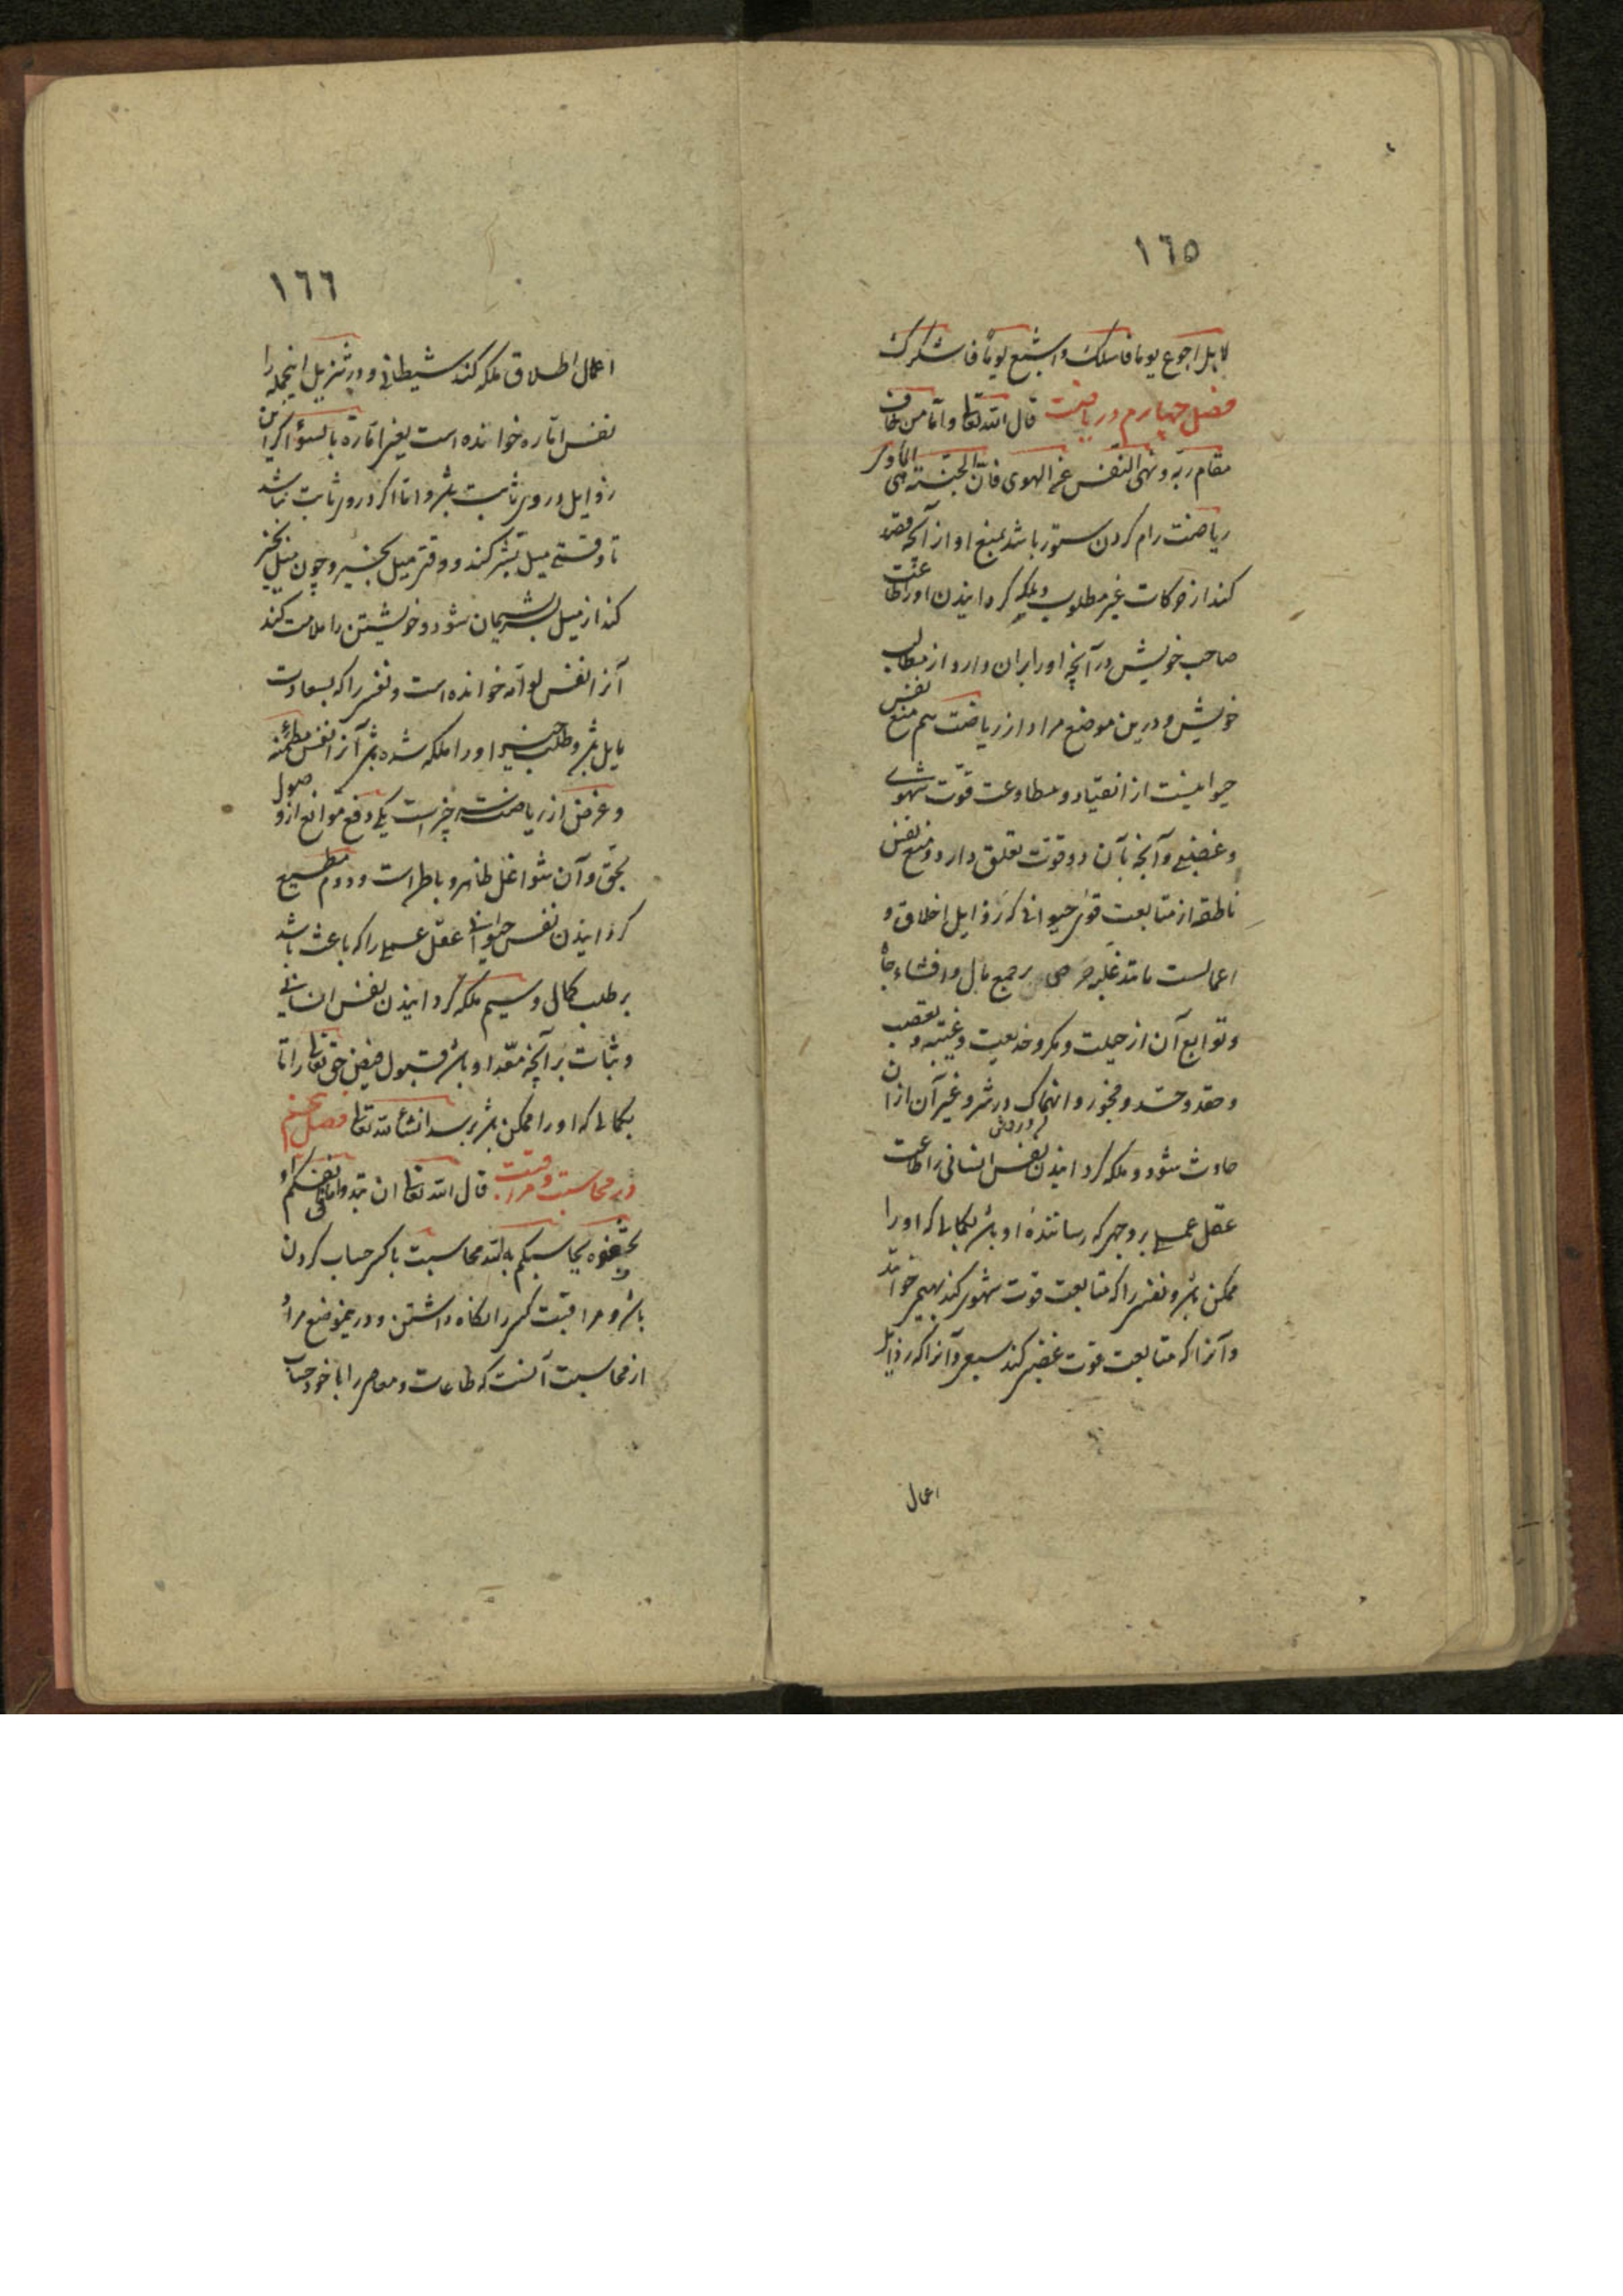 ١٦٥
لا بل اجوع یوما فاسئلک و اشبع یوما فاشکرک
فصل چهارم در ریاضت قال الله تعا و اما من خاف
مقام ربه و نهی النفس عن الهوی فان الجنة هی الماوی
ریاضت رام کردن ستور باشد بمنع او از آنچه قصد
کند از حرکات غیر مطلوب و ملکه کردانیدن او را طاعت
صاحب خویش در آنچه او را بران دارد از مطالب
خویش و درین موضع مراد از ریاضت هم منع نفس
حیوانیست از انقیاد و مطاوعت قوت شهوی
و غضبی و آنچه بآن دو قوت تعلق دارد و منع نفس
ناطقه از متابعت قوی حیوانی که رذایل اخلاق و
اعمالست مانند حرص بر جمع مال و اقتناء جاه
و توابع آن از حیلت و مکر و خدیعت و غیبة و تعصب
و حقد و حسد و فجور و انهماک در شر و غیر آن از ان
حادث شود و ملکه کردانیدن نفس انسانی را طاعت
عقل عملی بر وجهی که رساننده او باشد بکمالی که او را
ممکن باشد و نفسی را که متابعت قوت شهوی کند بهیمی خوانند
و آنرا که متابعت قوت غضبی کند سبعی و آنرا که رذایل
اعمال
١٦٦
اعمال اطلاق ملکه کند شیطانی و در تنزیل اینجمله را
نفس اماره خوانده است یعنی امارة بالسوء اکر این
رذایل در وی ثابت باشد و اما اکر در وی ثابت نباشد
تا وقتی میل بشر کند و وقتی میل بخیر و چون میل بخیر
کند از میل بشر پشیمان شود و خویشتن را ملامت کند
آنرا نفس لوامه خوانده است و نفسی را که بسعادت
مایل باشد و طلب خیر او را ملکه شده باشد آنرا نفس مطمئنه
و غرض از ریاضت سه چیز است یکی دفع موانع از وصول
بحق و آن شواغل ظاهر و باطن است و دوم مطیع
کردانیدن نفس حیوانی عقل عملی را که باعث باشد
بر طلب کمال و سیم ملکه کردانیدن نفس انسانی
و ثبات بر آنچه معد او باشد قبول فیض حق تعا را تا
بکمالی که او را ممکن باشد برسد انشاء الله تعا فصل پنجم
در محاسبت و مراقبت قال الله تعا ان تبدوا ما فی انفسکم او
تخفوه یحاسبکم به الله محاسبت با کسی حساب کردن
باشد و مراقبت کسی را نکاه داشتن و درینموضع مراد
از محاسبت آنست که طاعات و معاصی را با خود حساب